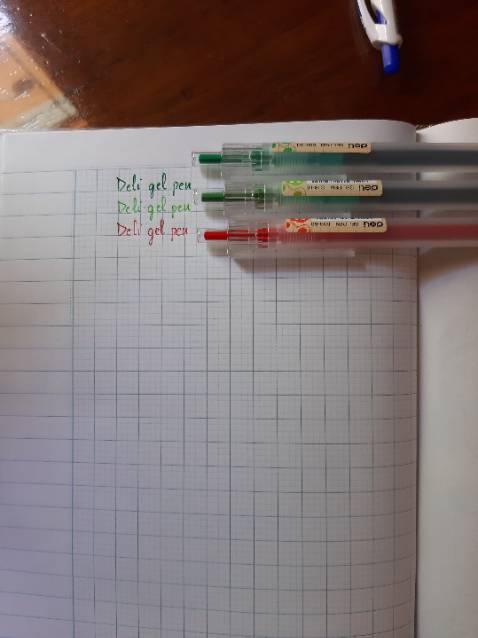 Deli gel pen
Deli gel pen
Deli gel pen
deli
deli
deli